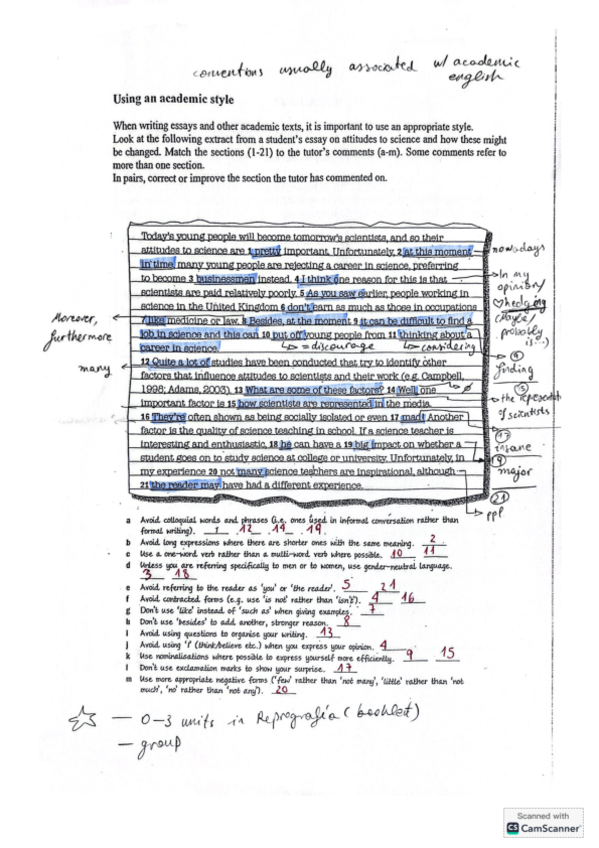 conventions usually associated w/ academic
english
Using an academic style
When writing essays and other academic texts, it is important to use an appropriate style.
Look at the following extract from a student's essay on attitudes to science and how these might
be changed. Match the sections (1-21) to the tutor's comments (a-m). Some comments refer to
more than one section.
In pairs, correct or improve the section the tutor has commented on.
Today's young people will become tomorrow's scientists, and so their
attitudes to science are 1 pretty important. Unfortunately, 2 at this moment
in time, many young people are rejecting a career in science, preferring
to become 3 businessmen instead. 4 I think one reason for this is that
scientists are paid relatively poorly. 5 As you saw earlier, people working in
science in the United Kingdom 6 don't earn as much as those in occupations
7 like medicine or law. 8 Besides, at the moment 9 it can be difficult to find a
job in science and this can 10 put off young people from 11 thinking about a
career in science.
= discourage
considering
12 Quite a lot of studies have been conducted that try to identify other
factors that influence attitudes to scientists and their work (e.g. Campbell,
1998; Adams, 2003). 13 What are some of these factors? 14 Well, one
important factor is 15 how scientists are represented in the media.
16 They're often shown as being socially isolated or even 17 mad! Another
factor is the quality of science teaching in school. If a science teacher is
interesting and enthusiastic, 18 he can have a 19 big impact on whether a
student goes on to study science at college or university. Unfortunately, in
my experience 20 not many science teachers are inspirational, although
21 the reader may have had a different experience.
Moreover,
furthermore
many
nowadays
In my
opinion/
hedging
(Maybe/
probably
is...)
9
finding
15
the represent
of scientists
17
insane
19
major
21
ppl
a Avoid colloquial words and phrases (i.e. ones used in informal conversation rather than
formal writing). 1 12 14 19
b Avoid long expressions where there are shorter ones with the same meaning. 2
c Use a one-word verb rather than a multi-word verb where possible. 10 11
d Unless you are referring specifically to men or to women, use gender-neutral language.
3 18
e Avoid referring to the reader as 'you' or 'the reader'. 5 21
f Avoid contracted forms (e.g. use 'is not' rather than 'isn't'). 16
g Don't use 'like' instead of 'such as' when giving examples. 7
h Don't use 'besides' to add another, stronger reason. 8
i Avoid using questions to organise your writing. 13
j Avoid using 'I' (think/believe etc.) when you express your opinion. 4
k Use nominalisations where possible to express yourself more efficiently. 9 15
l Don't use exclamation marks to show your surprise. 17
m Use more appropriate negative forms ('few' rather than 'not many', 'little' rather than 'not
much', 'no' rather than 'not any'). 20
— 0-3 units in Reprografía (booklet)
— group
Scanned with
CS CamScanner